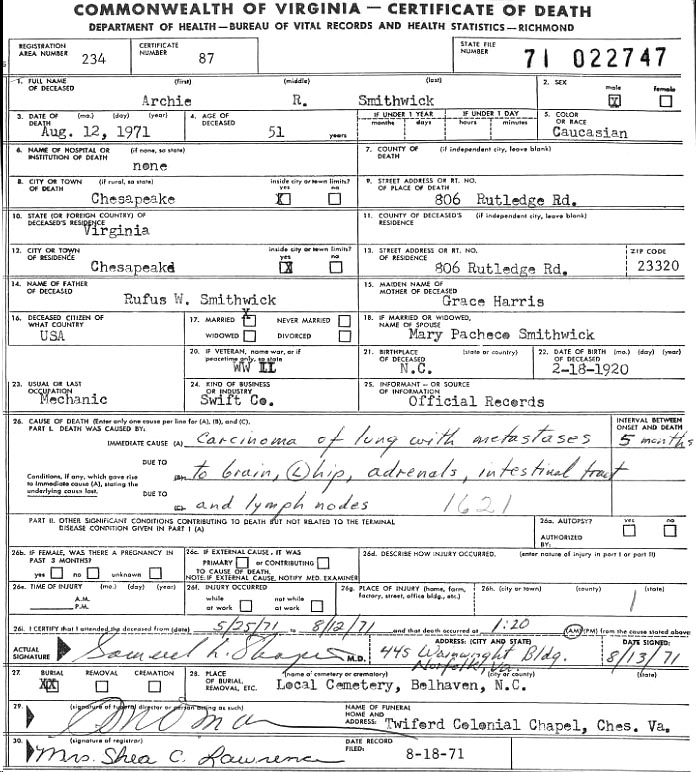 COMMONWEALTH OF VIRGINIA — CERTIFICATE OF DEATH
DEPARTMENT OF HEALTH—BUREAU OF VITAL RECORDS AND HEALTH STATISTICS—RICHMOND
REGISTRATION AREA NUMBER 234 CERTIFICATE NUMBER 87 STATE FILE NUMBER 71 022747
1. FULL NAME OF DECEASED (first) (middle) (last) 2. SEX male female
Archie R. Smithwick X
3. DATE OF DEATH (mo.) (day) (year) 4. AGE OF DECEASED IF UNDER 1 YEAR months days IF UNDER 1 DAY hours minutes 5. COLOR OR RACE
Aug. 12, 1971 51 years Caucasian
6. NAME OF HOSPITAL OR INSTITUTION OF DEATH (if none, so state) 7. COUNTY OF DEATH (if independent city, leave blank)
none
8. CITY OR TOWN OF DEATH (if rural, so state) inside city or town limits? yes no 9. STREET ADDRESS OR RT. NO. OF PLACE OF DEATH
Chesapeake X 806 Rutledge Rd.
10. STATE (OR FOREIGN COUNTRY) OF DECEASED'S RESIDENCE 11. COUNTY OF DECEASED'S RESIDENCE (if independent city, leave blank)
Virginia
12. CITY OR TOWN OF RESIDENCE inside city or town limits? yes no 13. STREET ADDRESS OR RT. NO. OF RESIDENCE ZIP CODE
Chesapeake X 806 Rutledge Rd. 23320
14. NAME OF FATHER OF DECEASED 15. MAIDEN NAME OF MOTHER OF DECEASED
Rufus W. Smithwick Grace Harris
16. DECEASED CITIZEN OF WHAT COUNTRY 17. MARRIED X NEVER MARRIED WIDOWED DIVORCED 18. IF MARRIED OR WIDOWED, NAME OF SPOUSE
USA Mary Pacheco Smithwick
20. IF VETERAN, name war, or if peacetime only, so state 21. BIRTHPLACE OF DECEASED (state or country) 22. DATE OF BIRTH (mo.) (day) (year) OF DECEASED
WW II N.C. 2-18-1920
23. USUAL OR LAST OCCUPATION 24. KIND OF BUSINESS OR INDUSTRY 25. INFORMANT - OR SOURCE OF INFORMATION
Mechanic Swift Co. Official Records
26. CAUSE OF DEATH (Enter only one cause per line for (A), (B), and (C). INTERVAL BETWEEN ONSET AND DEATH
PART I. DEATH WAS CAUSED BY:
IMMEDIATE CAUSE (A) Carcinoma of lung with metastases 5 months
Conditions, if any, which gave rise to immediate cause (A), stating the underlying cause last.
DUE TO to brain, (L) hip, adrenals, intestinal tract
DUE TO and lymph nodes 1621
PART II. OTHER SIGNIFICANT CONDITIONS CONTRIBUTING TO DEATH BUT NOT RELATED TO THE TERMINAL DISEASE CONDITION GIVEN IN PART I (A) 26a. AUTOPSY? yes no
AUTHORIZED BY:
26b. IF FEMALE, WAS THERE A PREGNANCY IN PAST 3 MONTHS? yes no unknown
26c. IF EXTERNAL CAUSE, IT WAS PRIMARY or CONTRIBUTING TO CAUSE OF DEATH.
NOTE: IF EXTERNAL CAUSE, NOTIFY MED. EXAMINER
26d. DESCRIBE HOW INJURY OCCURRED. (enter nature of injury in part I or part II)
26e. TIME OF INJURY (mo.) (day) (year) A.M. P.M.
26f. INJURY OCCURRED while at work not while at work
26g. PLACE OF INJURY (home, farm, factory, street, office bldg., etc.)
26h. (city or town) (county) (state)
26i. I CERTIFY that I attended the deceased from (date) 5/25/71 to 8/12/71 and that death occurred at 1:20 (AM) (PM) from the cause stated above
ACTUAL SIGNATURE Samuel M.D. ADDRESS: (CITY AND STATE) DATE SIGNED:
445 Wainwright Bldg. Norfolk, Va. 8/13/71
27. BURIAL REMOVAL CREMATION 28. PLACE OF BURIAL, REMOVAL, ETC. (name of cemetery or crematory) (city or county) (state)
XX Local Cemetery, Belhaven, N.C.
29. (signature of funeral director or person acting as such) NAME OF FUNERAL HOME AND ADDRESS: Twiford Colonial Chapel, Ches. Va.
30. (signature of registrar) DATE RECORD FILED:
Mrs. Shea C. Lawrence 8-18-71